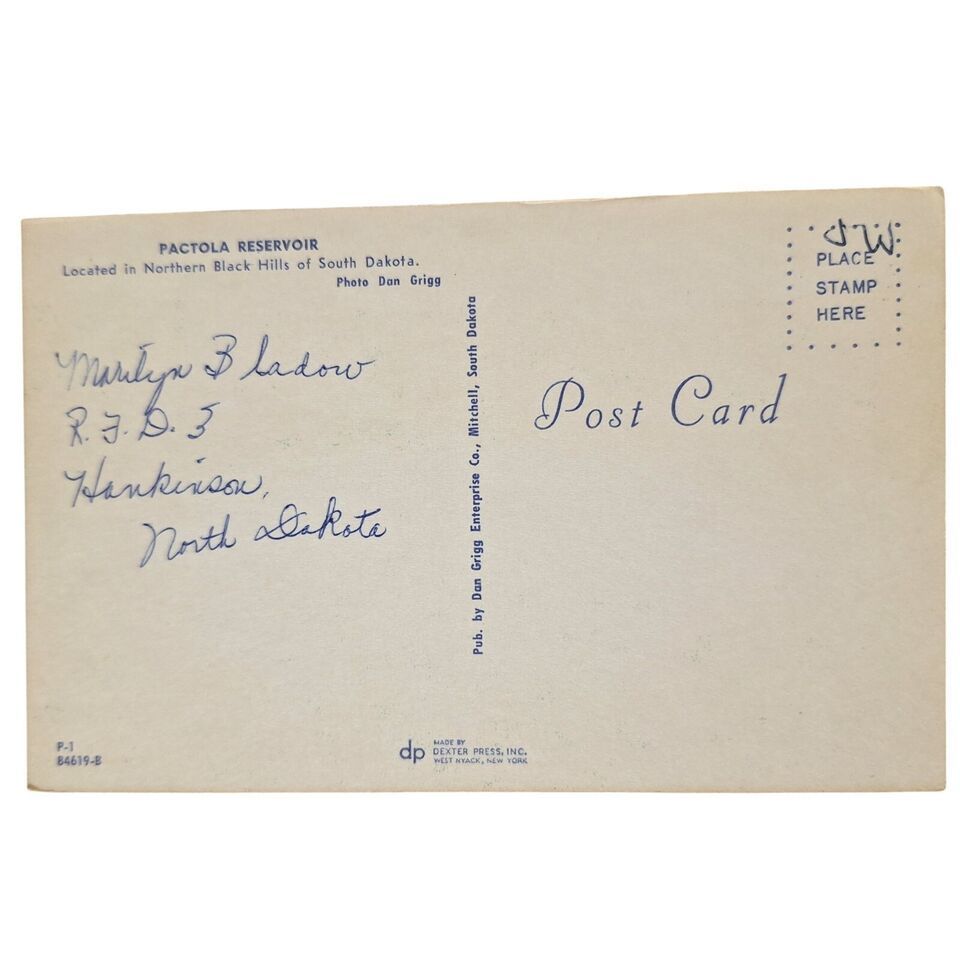 PACTOLA RESERVOIR
Located in Northern Black Hills of South Dakota.
Photo Dan Grigg
Marilyn Bladow
R.F.D. 3
Hankinson,
North Dakota
P-1
84619-B
Pub. by Dan Grigg Enterprise Co., Mitchell, South Dakota
dp
MADE BY
DEXTER PRESS, INC.
WEST NYACK, NEW YORK
JW
PLACE
STAMP
HERE
Post Card